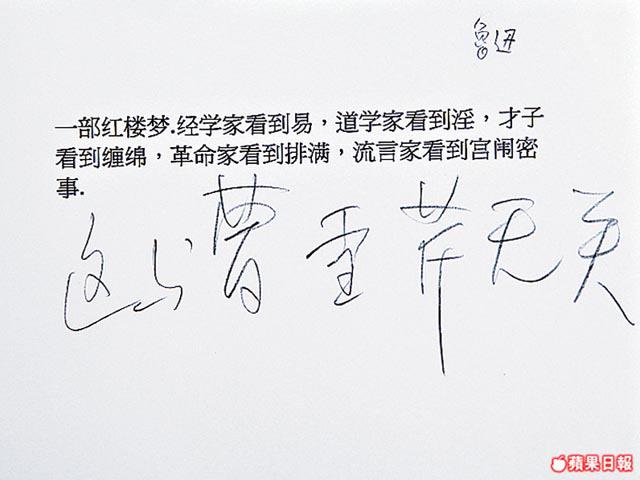 鲁迅
一部红楼梦.经学家看到易，道学家看到淫，才子
看到缠绵，革命家看到排满，流言家看到宫闱密
事.
这与曹雪芹无关
蘋果日報